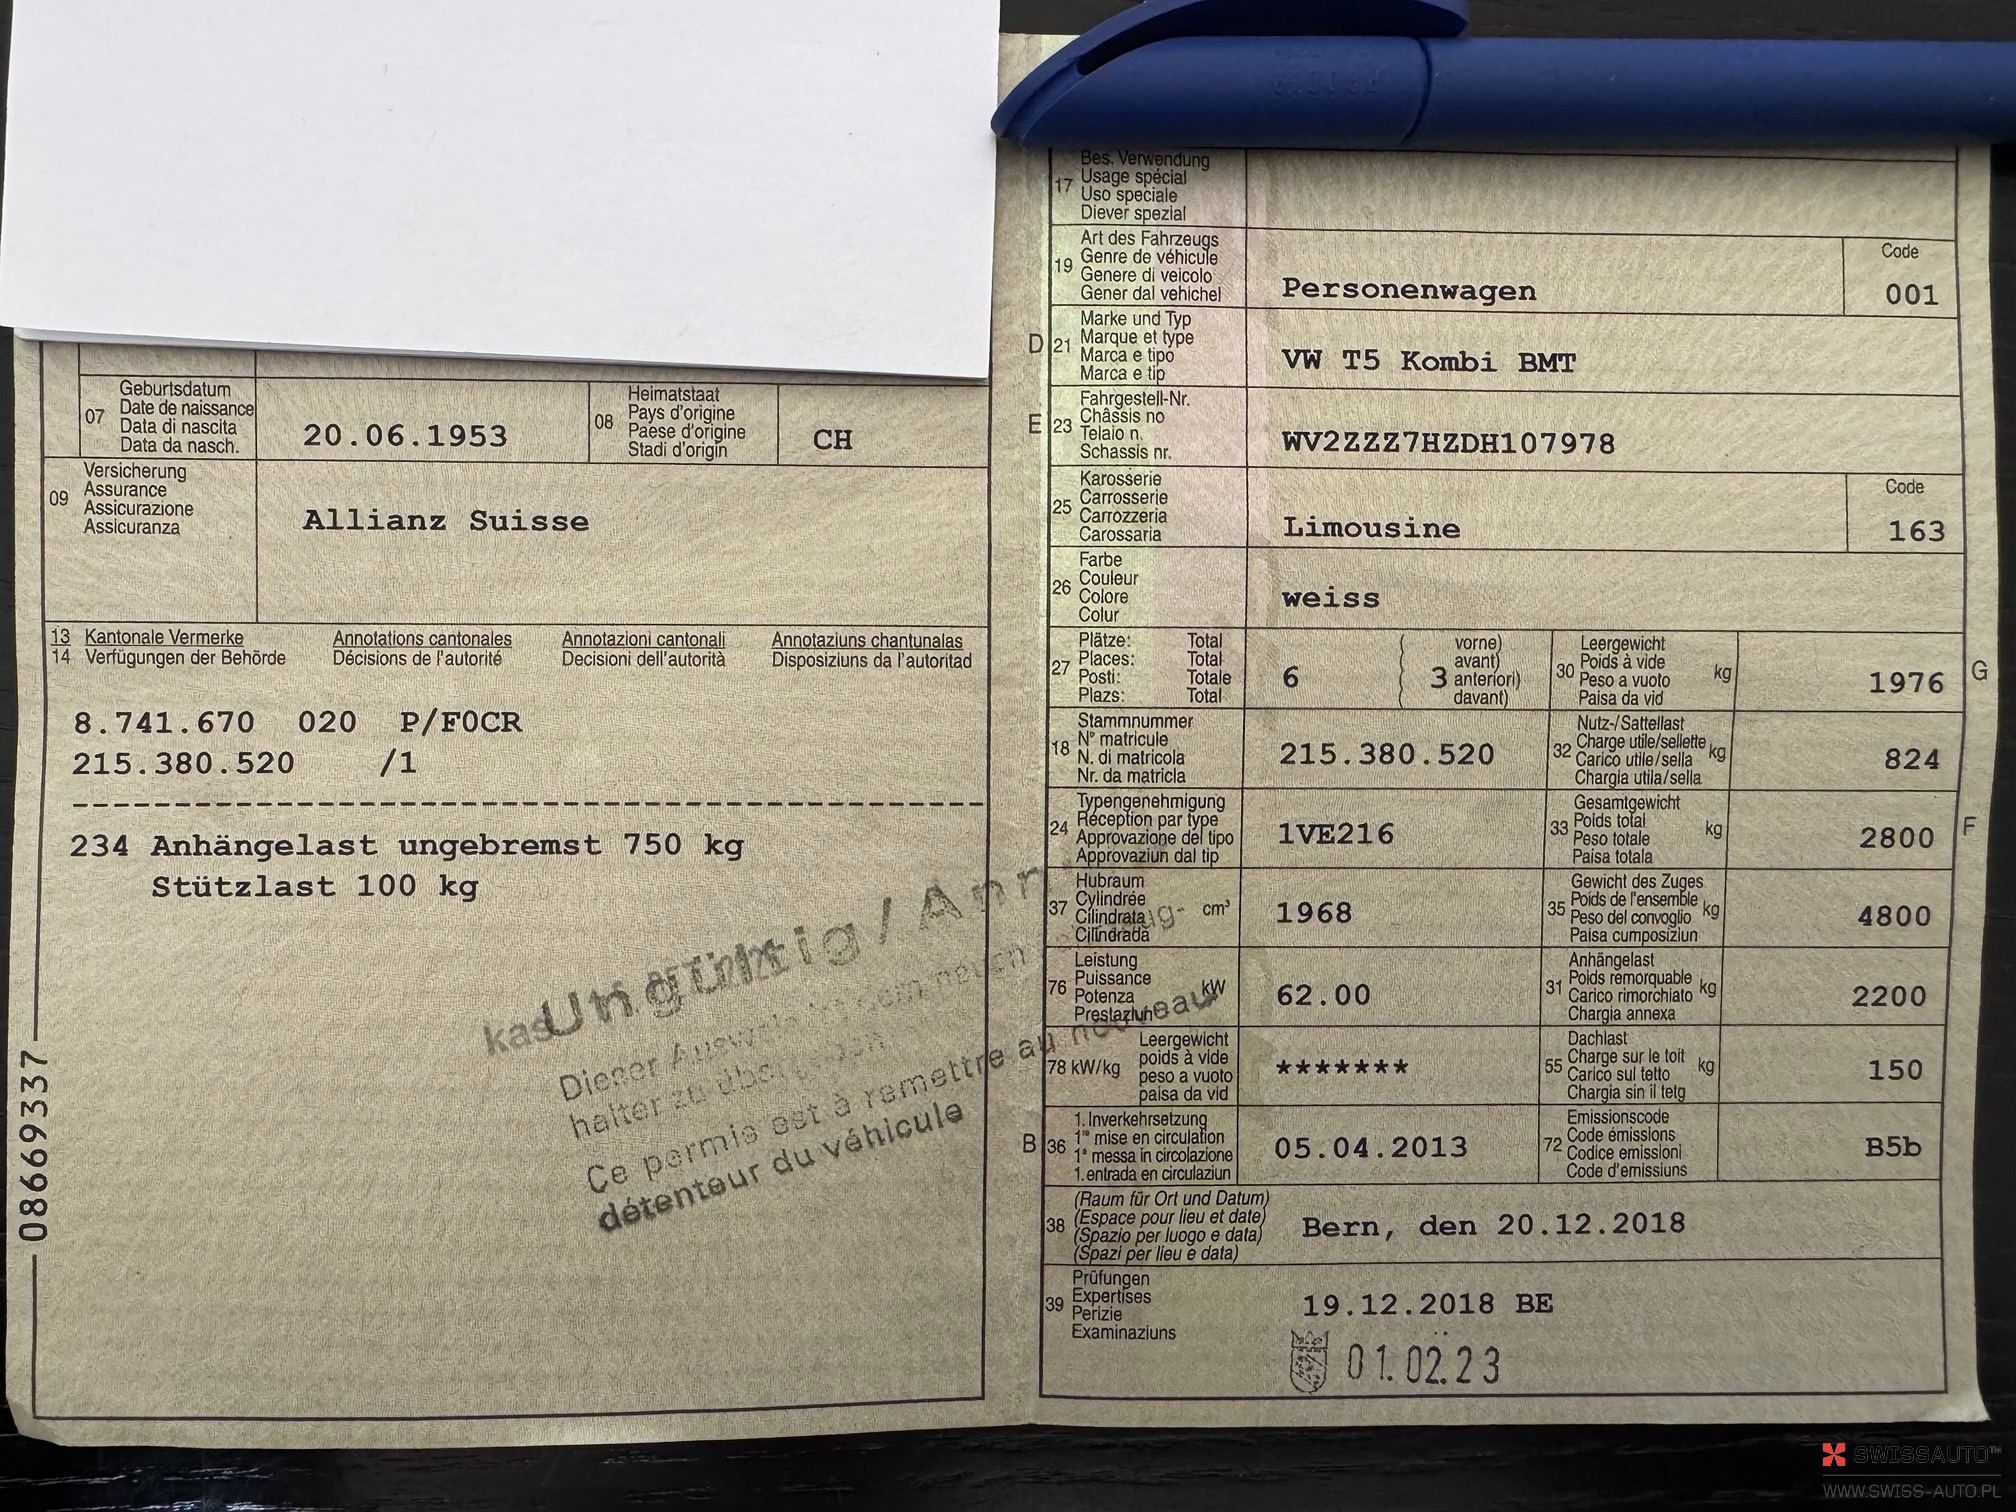 Geburtsdatum
Date de naissance
Data di nascita
Data da nasch.
07
20.06.1953
08
Heimatstaat
Pays d'origine
Paese d'origine
Stadi d'origin
CH
09
Versicherung
Assurance
Assicurazione
Assicuranza
Allianz Suisse
13 Kantonale Vermerke Annotations cantonales Annotazioni cantonali Annotaziuns chantunalas
14 Verfügungen der Behörde Décisions de l'autorité Decisioni dell'autorità Disposiziuns da l'autoritad
8.741.670 020 P/F0CR
215.380.520 /1
234 Anhängelast ungebremst 750 kg
Stützlast 100 kg
Ungültig/
Dieser
halter zu
Ce permis est à remettre au nouveau
détenteur du véhicule
08669337
17
Bes. Verwendung
Usage spécial
Uso speciale
Diever spezial
19
Art des Fahrzeugs
Genre de véhicule
Genere di veicolo
Gener dal vehichel
Personenwagen
Code
001
D 21
Marke und Typ
Marque et type
Marca e tipo
Marca e tip
VW T5 Kombi BMT
E 23
Fahrgestell-Nr.
Châssis no
Telaio n.
Schassis nr.
WV2ZZZ7HZDH107978
25
Karosserie
Carrosserie
Carrozzeria
Carossaria
Limousine
Code
163
26
Farbe
Couleur
Colore
Colur
weiss
27
Plätze: Total
Places: Total
Posti: Totale
Plazs: Total
6
3
( vorne)
( avant)
( anteriori)
( davant)
30
Leergewicht
Poids à vide
Peso a vuoto
Paisa da vid
kg
1976
G
18
Stammnummer
N° matricule
N. di matricola
Nr. da matricla
215.380.520
32
Nutz-/Sattellast
Charge utile/sellette
Carico utile/sella
Chargia utila/sella
kg
824
24
Typengenehmigung
Réception par type
Approvazione del tipo
Approvaziun dal tip
1VE216
33
Gesamtgewicht
Poids total
Peso totale
Paisa totala
kg
2800
F
37
Hubraum
Cylindrée
Cilindrata
Cilindrada
cm³
1968
35
Gewicht des Zuges
Poids de l'ensemble
Peso del convoglio
Paisa cumposiziun
kg
4800
76
Leistung
Puissance
Potenza
Prestaziun
kW
62.00
31
Anhängelast
Poids remorquable
Carico rimorchiato
Chargia annexa
kg
2200
78 kW/kg
Leergewicht
poids à vide
peso a vuoto
paisa da vid
*******
55
Dachlast
Charge sur le toit
Carico sul tetto
Chargia sin il tetg
kg
150
B 36
1. Inverkehrsetzung
1re mise en circulation
1a messa in circolazione
1. entrada en circulaziun
05.04.2013
72
Emissionscode
Code émissions
Codice emissioni
Code d'emissiuns
B5b
38
(Raum für Ort und Datum)
(Espace pour lieu et date)
(Spazio per luogo e data)
(Spazi per lieu e data)
Bern, den 20.12.2018
39
Prüfungen
Expertises
Perizie
Examinaziuns
19.12.2018 BE
01.02.23
SWISSAUTO™
WWW.SWISS-AUTO.PL